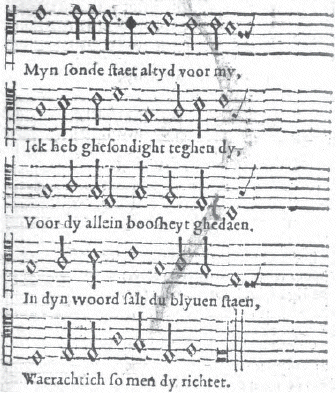 Myn sonde staet altyd voor my,
Ick heb ghesondight teghen dy,
Voor dy allein boosheyt ghedaen.
In dyn woord salt du blyuen staen,
Waerachtich so men dy richtet.